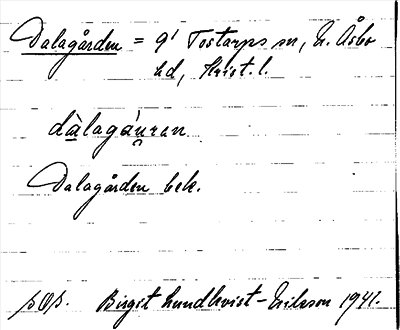 Dalagården = g' Tostarps sn, N. Åsbo
hd, Krist. l.
dàlagáuran
Dalagården bek.
Birgit Lundkvist-Eriksson 1941.